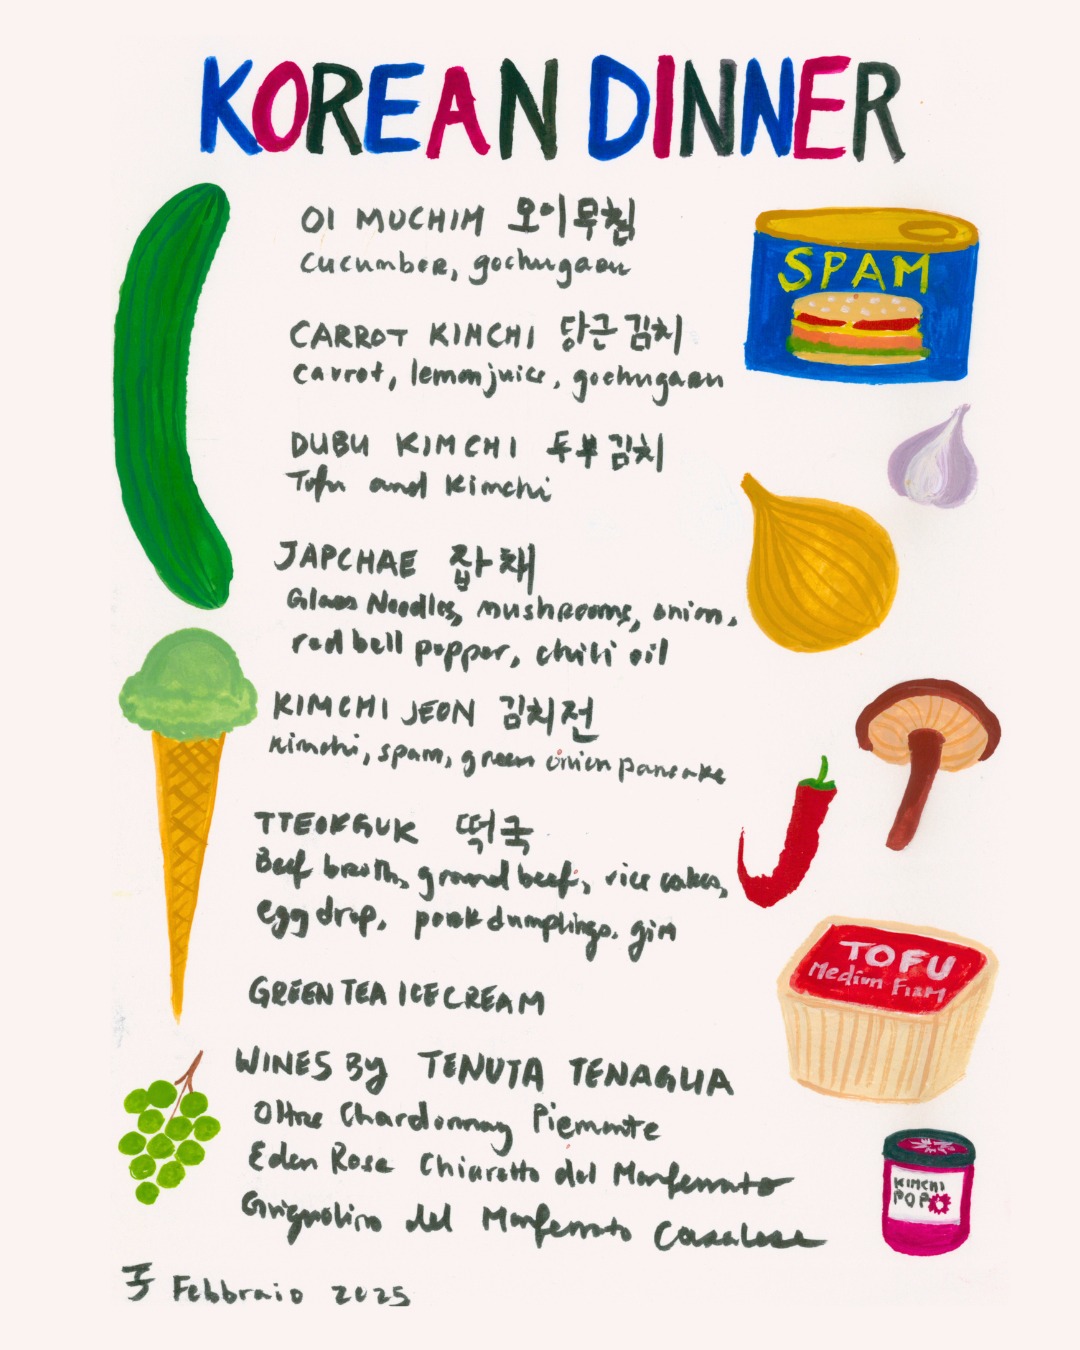 KOREAN DINNER
OI MUCHIM 오이무침
cucumber, gochugaru
CARROT KIMCHI 당근김치
carrot, lemon juice, gochugaru
DUBU KIMCHI 두부김치
Tofu and Kimchi
JAPCHAE 잡채
Glass Noodles, mushrooms, onion,
red bell pepper, chili oil
KIMCHI JEON 김치전
kimchi, spam, green onion pancake
TTEOKGUK 떡국
Beef broth, ground beef, rice cakes,
egg drop, pork dumplings, gim
GREEN TEA ICE CREAM
WINES By TENUTA TENAGLIA
Oltre Chardonnay Piemonte
Eden Rose Chiaretto del Monferrato
Grignolino del Monferrato Casalese
Febbraio 2025
SPAM
TOFU
Medium FIRM
KIMCHI
POP